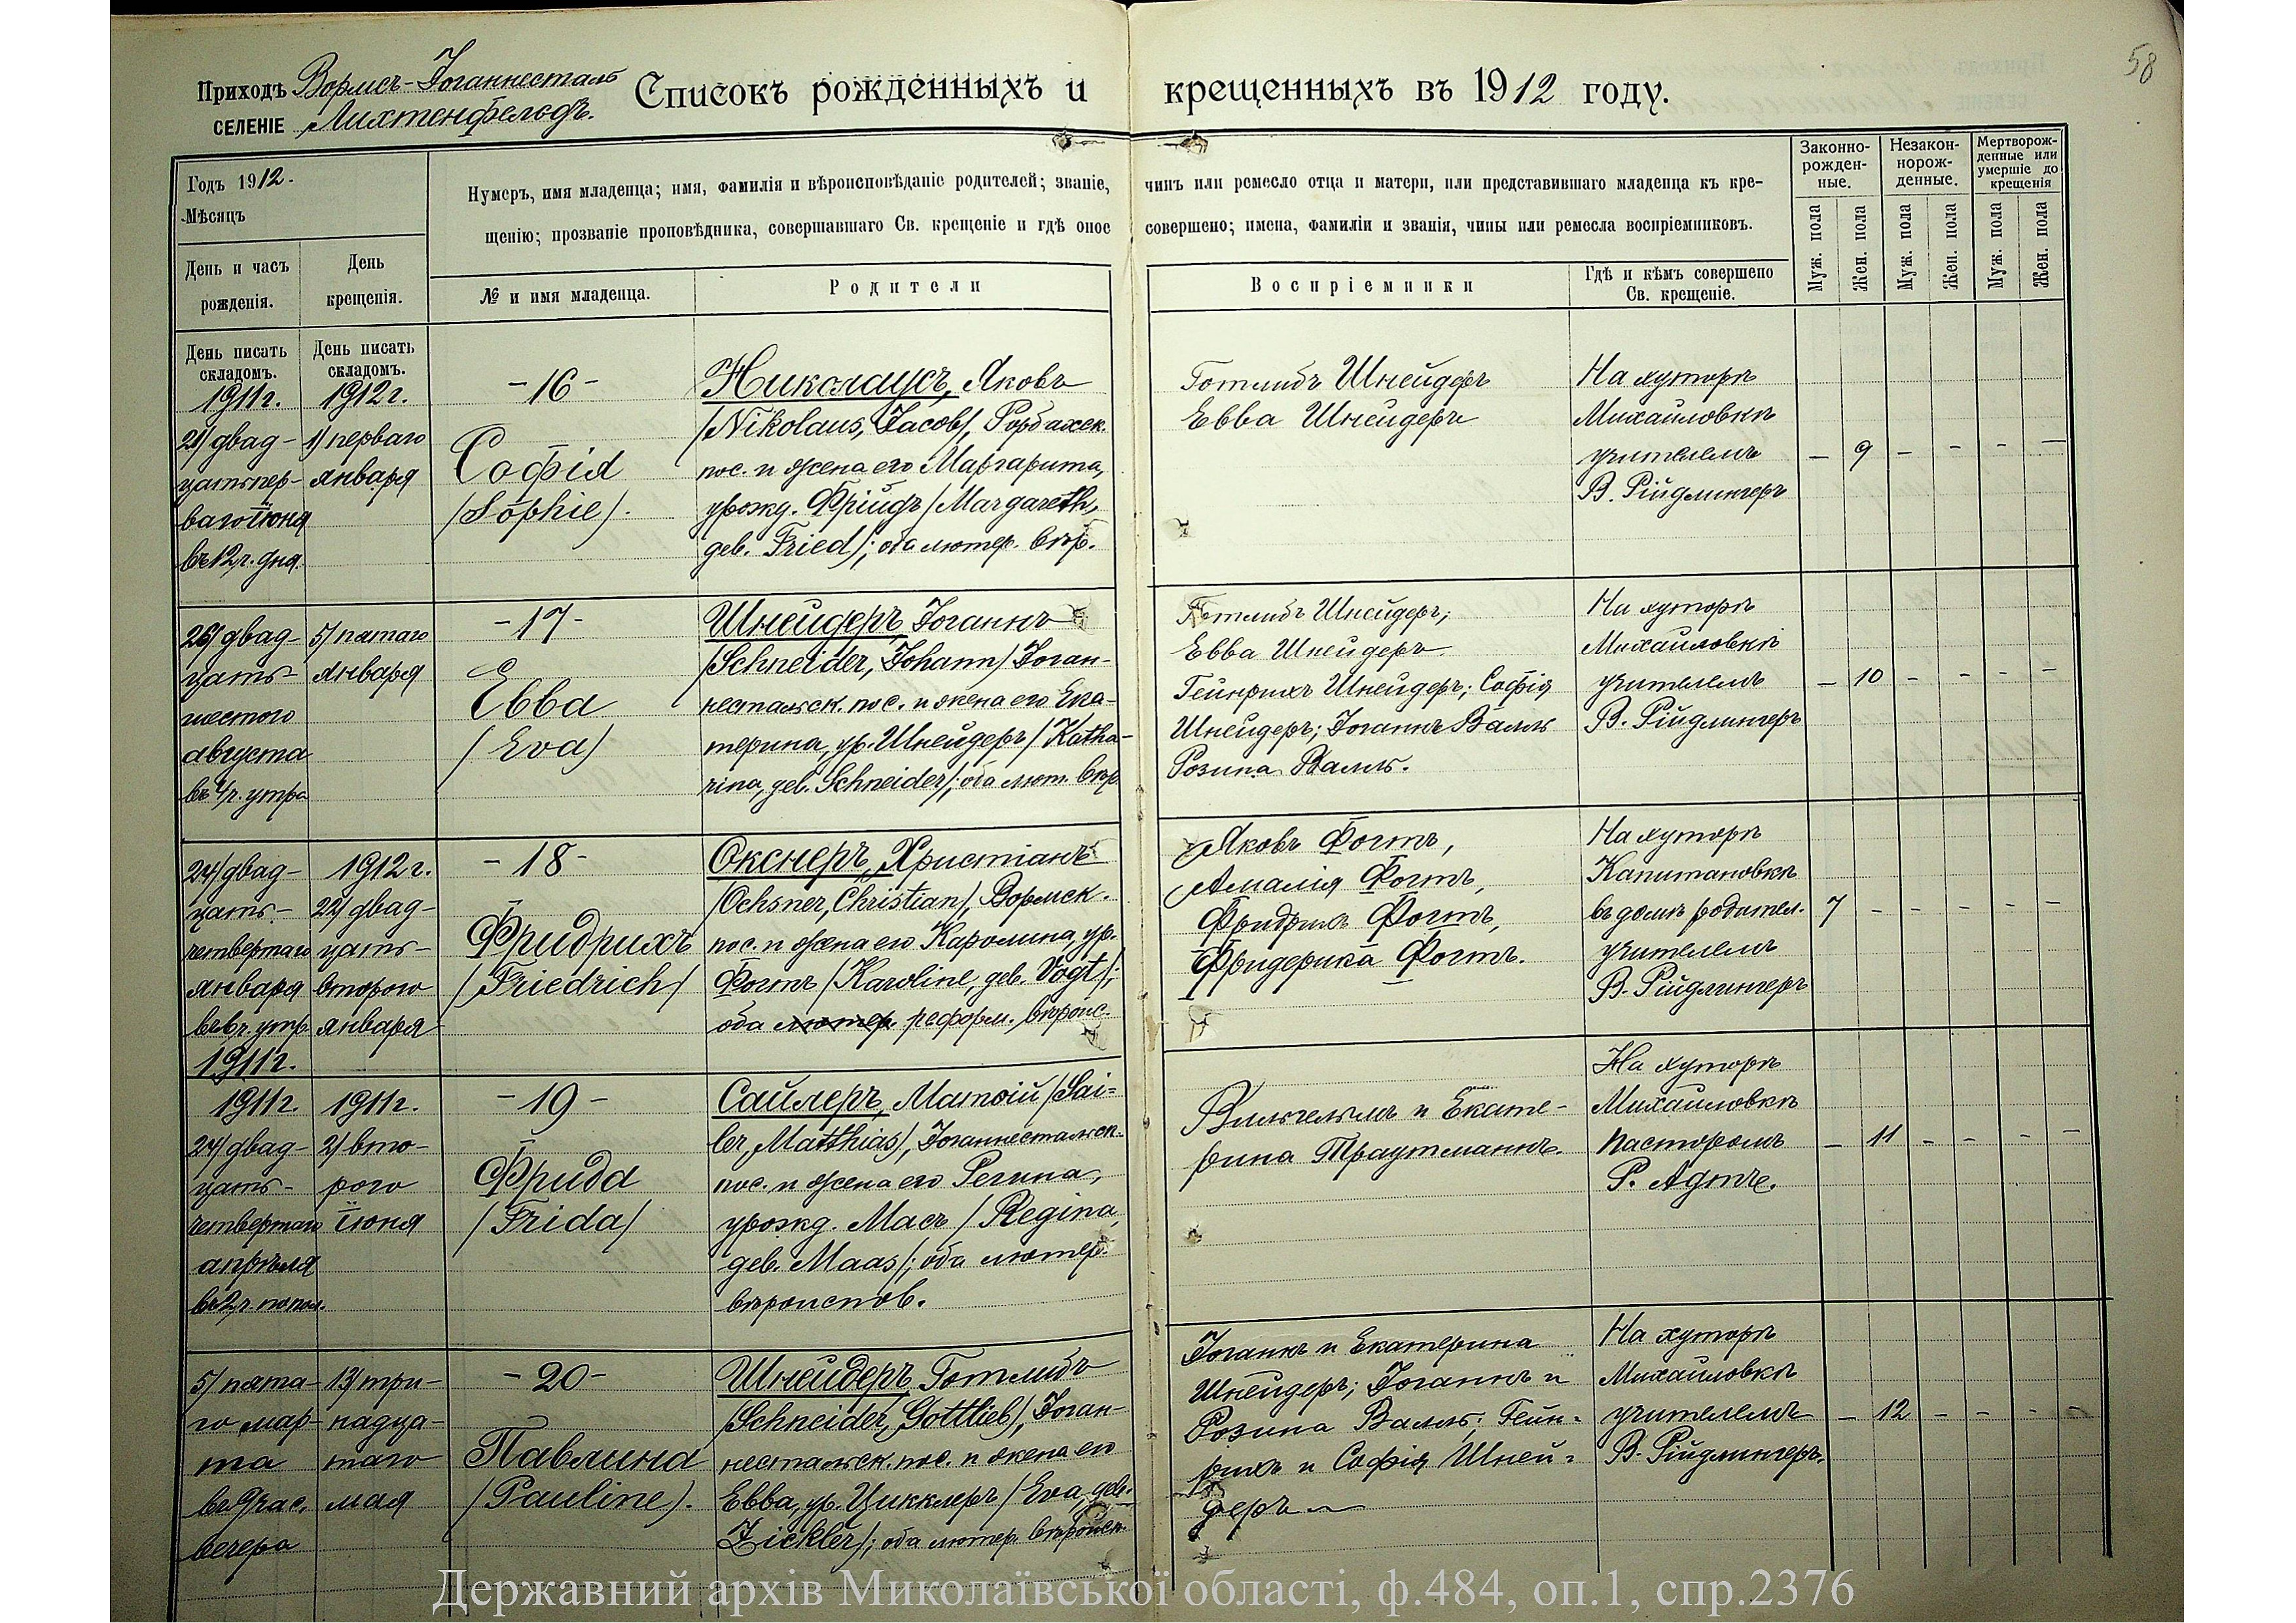 58
Приходъ Вормсъ-Іоганнесталь
селеніе Лихтенфельдъ.
Списокъ рожденныхъ и крещенныхъ въ 1912 году.
Годъ 1912.
Мѣсяцъ
День и часъ рожденія.
День крещенія.
Нумеръ, имя младенца; имя, фамилія и вѣроисповѣданіе родителей; званіе, чинъ или ремесло отца и матери, или представившаго младенца къ кре-
щенію; прозваніе проповѣдника, совершавшаго Св. крещеніе и гдѣ оное совершено; имена, фамиліи и званія, чины или ремесла воспріемниковъ.
№ и имя младенца.
Родители
Воспріемники
Гдѣ и кѣмъ совершено
Св. крещеніе.
Законно-
рожден-
ные.
Незакон-
норож-
денные.
Мертворож-
денные или
умершіе до
крещенія
Муж. пола
Жен. пола
Муж. пола
Жен. пола
Муж. пола
Жен. пола
День писать
складомъ.
День писать
складомъ.
1911г.
21/ двад-
цатьпер-
ваго іюня
въ 12 ч. дня.
1912г.
1/ перваго
января
-16-
Софія
/Sophie/.
Николаусъ, Яковъ
/Nikolaus, Jacob/, Рорбахск.
пос. и жена его Маргарита,
урожд. Фрійдъ /Margareth,
geb. Fried/; оба лютер. вѣр.
Готлибъ Шнейдеръ
Евва Шнейдеръ
На хуторѣ
Михайловкѣ
учителемъ
В. Рійдлингеръ
- 9 - - - -
26/ двад-
цать-
шестого
августа
въ 4 ч. утра
5/ пятаго
января
-17-
Евва
/Eva/
Шнейдеръ Іоганнъ
/Schneider, Johann/ Іоган-
нестальск. пос. и жена его Ека-
терина, ур. Шнейдеръ /Katha-
rina, geb. Schneider/; оба лют. вѣр.
Готлибъ Шнейдеръ;
Евва Шнейдеръ
Гейнрихъ Шнейдеръ; Софія
Шнейдеръ; Іоганнъ Валль
Розина Валль.
На хуторѣ
Михайловкѣ
учителемъ
В. Рійдлингеръ
- 10 - - - -
24/ двад-
цать-
четвертаго
января
утр.
1911г.
1912г.
22/ двад-
цать-
второго
января
-18-
Фридрихъ
/Friedrich/
Окснеръ, Христіанъ
/Ochsner, Christian/, Вормск.
пос. и жена его Каролина, ур.
Фогтъ /Karoline, geb. Vogt/;
оба лютер. реформ. вѣроис.
Яковъ Фогтъ,
Амалія Фогтъ,
Фридрихъ Фогтъ,
Фридерика Фогтъ.
На хуторѣ
Капитановкѣ
въ домѣ родител.
учителемъ
В. Рійдлингеръ
7 - - - - -
1911г.
24/ двад-
цать-
четвертаго
апрѣля
въ 2 ч. попол.
1911г.
2/ вто-
рого
іюня
-19-
Фрида
/Frida/
Сайлеръ, Матѳій /Sai-
ler, Matthias/, Іоганнестальск.
пос. и жена его Регина,
урожд. Масъ /Regina,
geb. Maas/; оба лютер.
вѣроиспов.
Вильгельмъ и Екате-
рина Траутманнъ.
На хуторѣ
Михайловкѣ
пасторомъ
Р. Адтъ.
- 11 - - - -
5/ пята-
го мар-
та
въ 9 час.
вечера
13/ три-
надца-
таго
мая
-20-
Павлина
/Pauline/.
Шнейдеръ Готлибъ
/Schneider, Gottlieb/, Іоган-
нестальск. пос. и жена его
Евва, ур. Цикклеръ /Eva, geb.
Zickler/; оба лютер. вѣроисп.
Іоганнъ и Екатерина
Шнейдеръ; Іоганнъ и
Розина Валль; Гейн-
рихъ и Софія Шней-
деръ
На хуторѣ
Михайловкѣ
учителемъ
В. Рійдлингеръ.
- 12 - - - -
Державний архів Миколаївської області, ф.484, оп.1, спр.2376